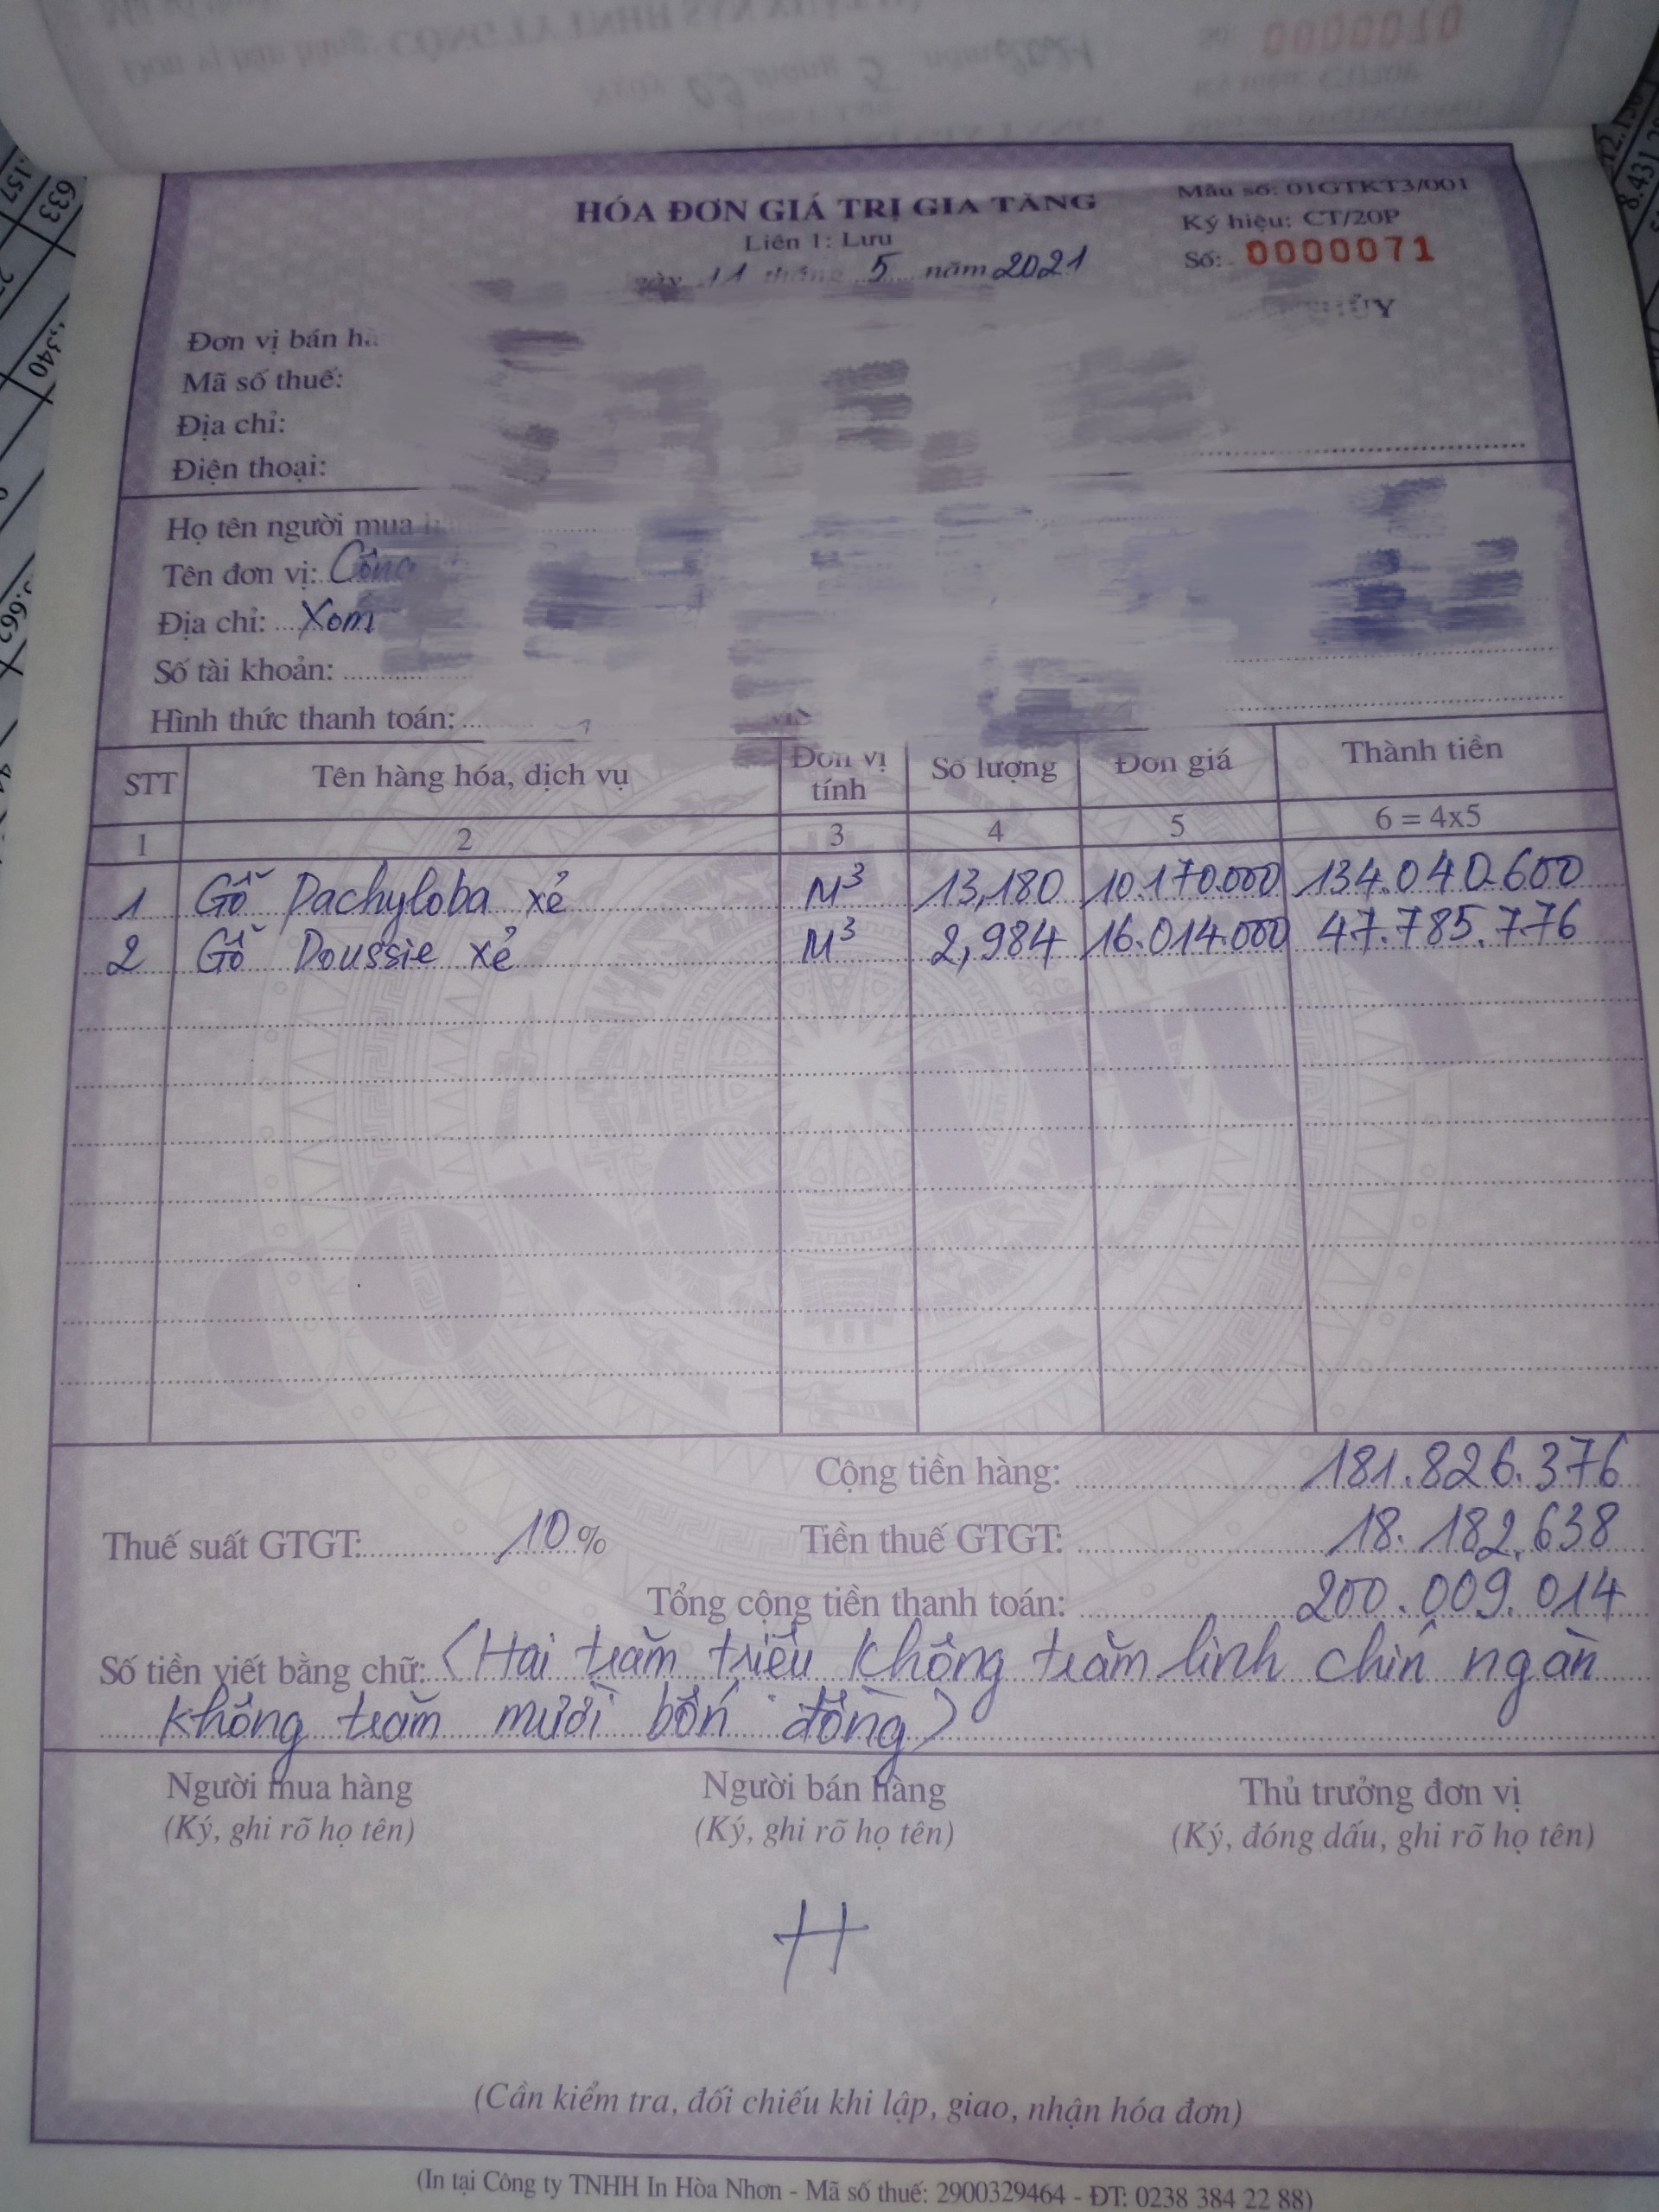 0000070
HÓA ĐƠN GIÁ TRỊ GIA TĂNG
Mẫu số: 01GTKT3/001
Liên 1: Lưu
Ký hiệu: CT/20P
11 tháng 5 năm 2021
Số: 0000071
Đơn vị bán
Mã số thuế:
Địa chỉ:
Điện thoại:
Họ tên người mua
Tên đơn vị: Công
Địa chỉ: Xóm
Số tài khoản:
Hình thức thanh toán:
STT Tên hàng hóa, dịch vụ Đơn vị tính Số lượng Đơn giá Thành tiền
1 2 3 4 5 6 = 4x5
1 Gỗ Pachyloba xẻ M³ 13,180 10.170.000 134.040.600
2 Gỗ Doussie xẻ M³ 2,984 16.014.000 47.785.776
CÔNG THỦY
Cộng tiền hàng: 181.826.376
Thuế suất GTGT: 10 % Tiền thuế GTGT: 18.182.638
Tổng cộng tiền thanh toán: 200.009.014
Số tiền viết bằng chữ: (Hai trăm triệu không trăm linh chín ngàn
không trăm mười bốn đồng)
Người mua hàng Người bán hàng Thủ trưởng đơn vị
(Ký, ghi rõ họ tên) (Ký, ghi rõ họ tên) (Ký, đóng dấu, ghi rõ họ tên)
(Cần kiểm tra, đối chiếu khi lập, giao, nhận hóa đơn)
(In tại Công ty TNHH In Hòa Nhơn - Mã số thuế: 2900329464 - ĐT: 0238 384 22 88)